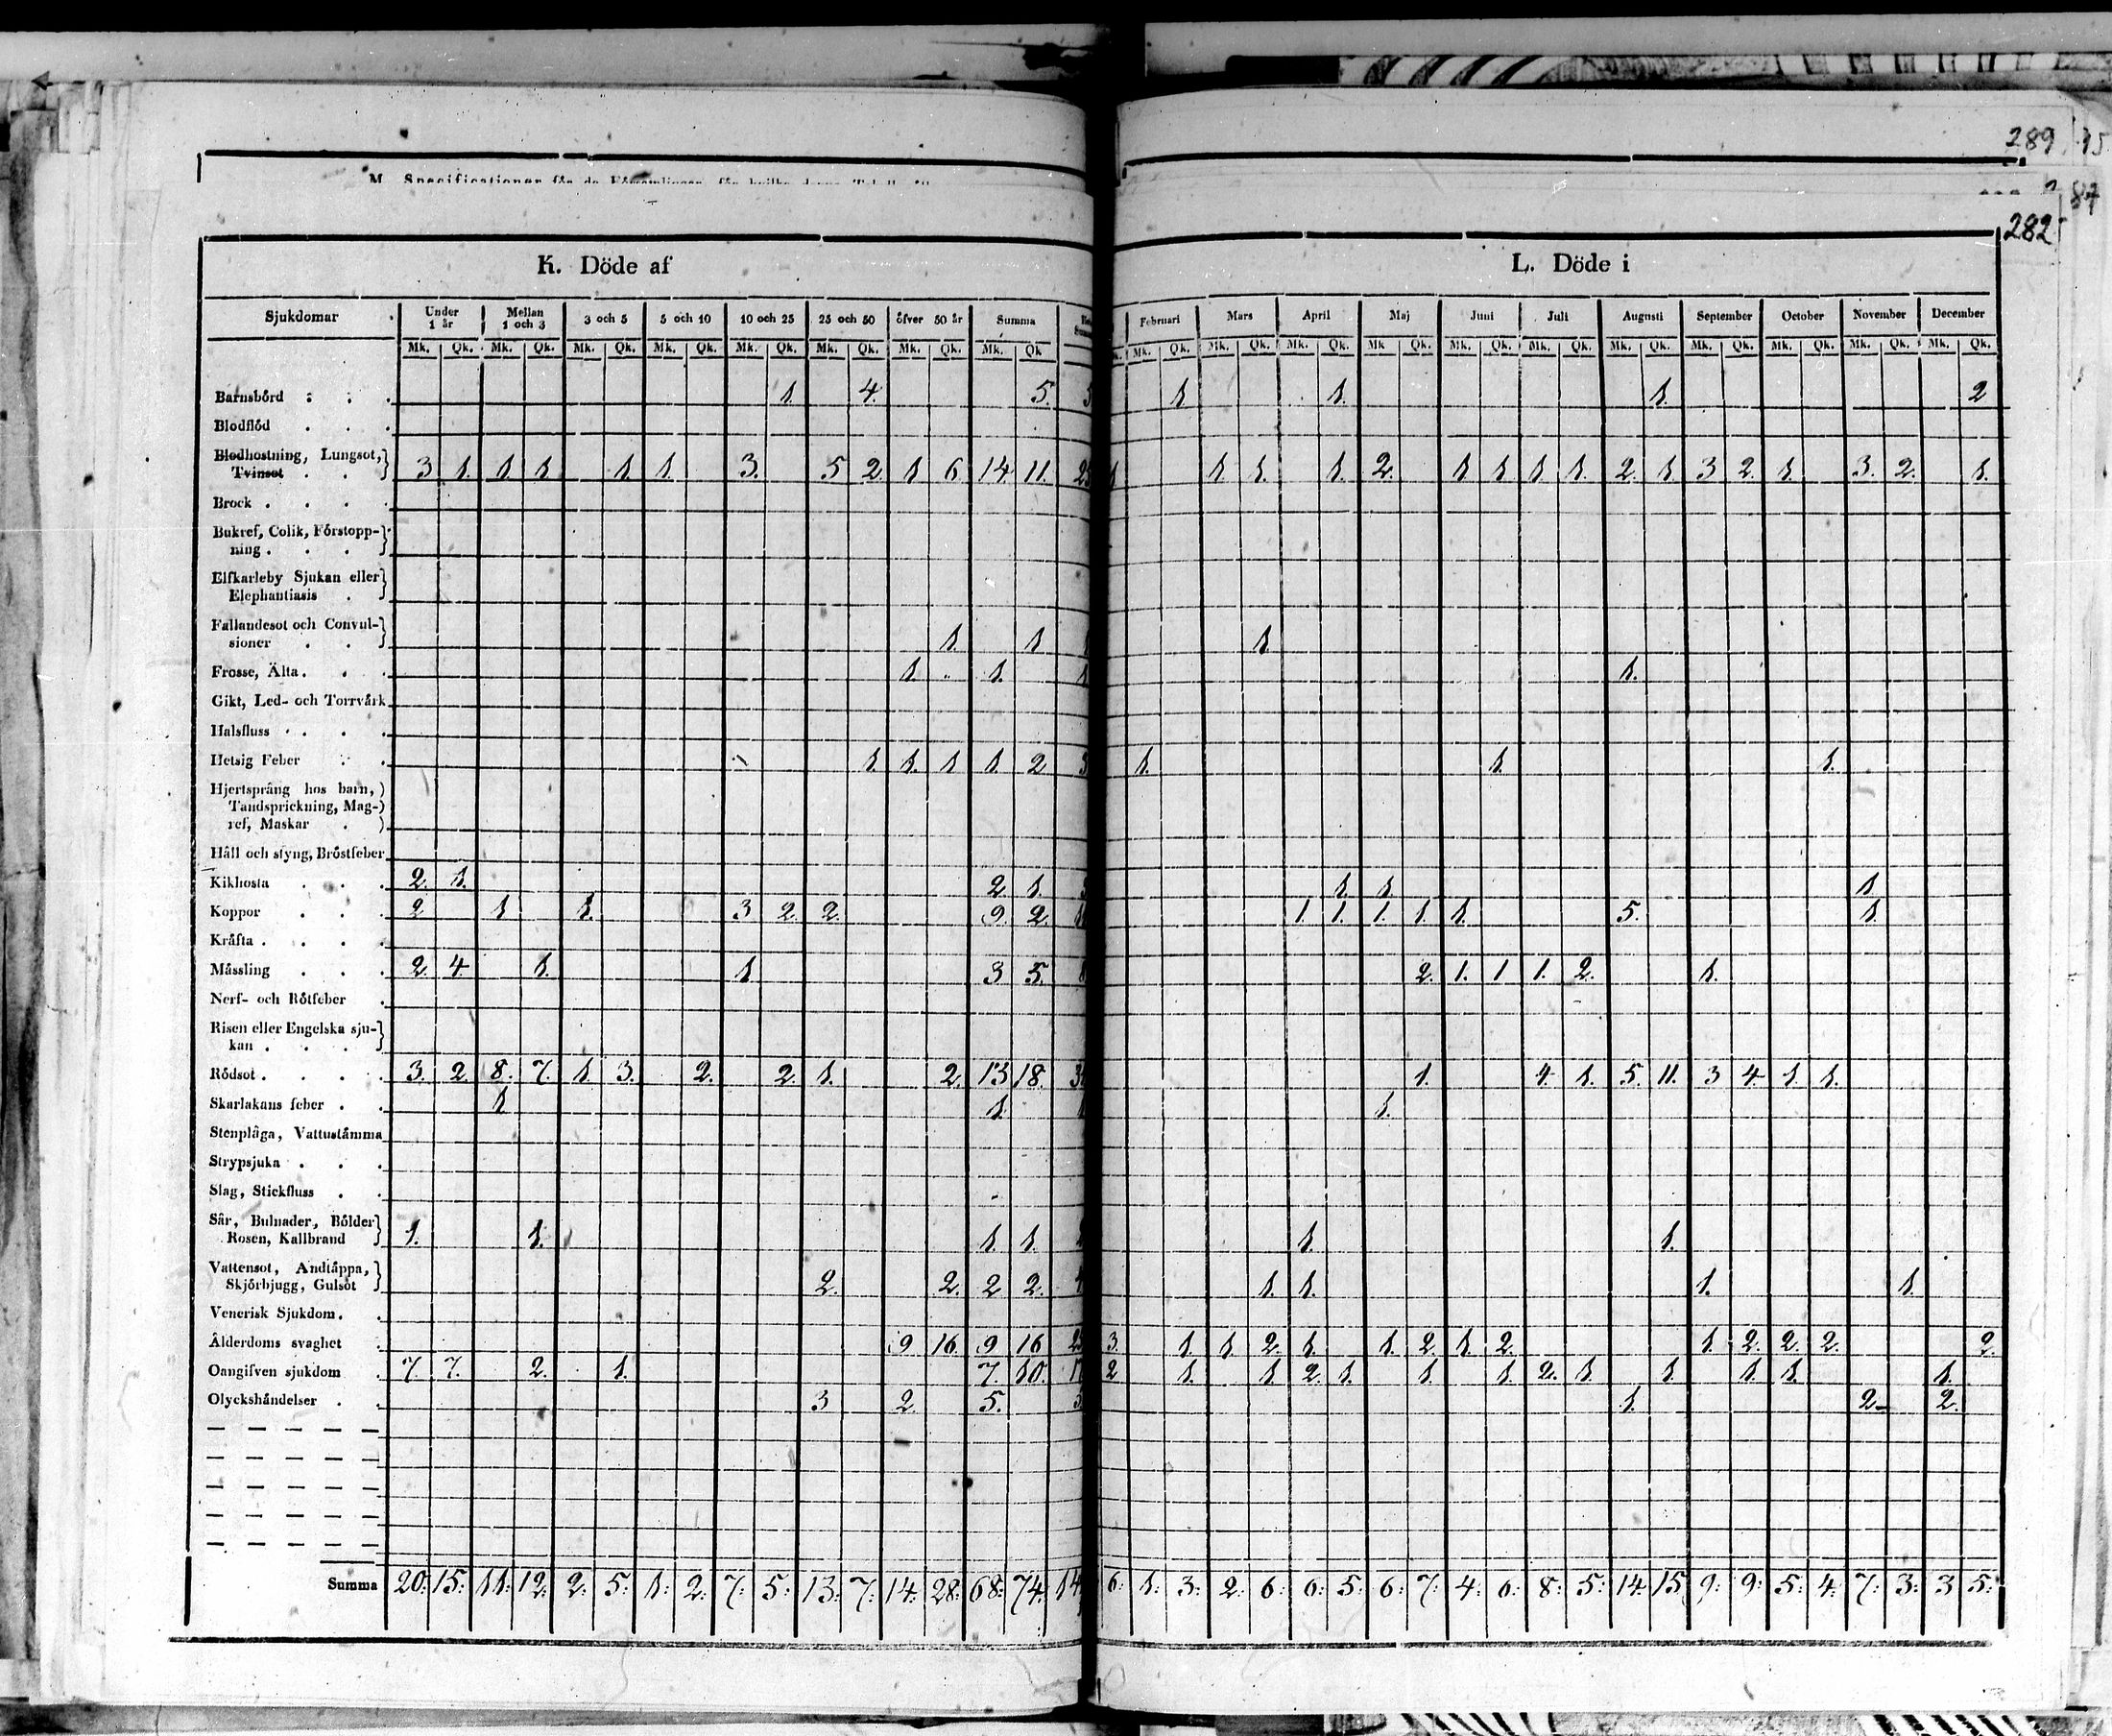 289 15
M. Specificationer för de Församlingar, för hvilka denna Tabell
87
282
K. Döde af L. Döde i
Sjukdomar Under 1 år Mellan 1 och 3 3 och 5 5 och 10 10 och 25 25 och 50 öfver 50 år Summa Februari Mars April Maj Juni Juli Augusti September October November December
Mk. Qk. Mk. Qk. Mk. Qk. Mk. Qk. Mk. Qk. Mk. Qk. Mk. Qk. Mk. Qk Mk. Qk. Mk. Qk. Mk. Qk. Mk Qk. Mk. Qk. Mk. Qk. Mk. Qk. Mk. Qk. Mk. Qk. Mk. Qk. Mk. Qk.
Barnsbörd 1. 4. 5. 5 1 1. 1. 2
Blodflöd
Blodhostning, Lungsot,
Tvinsot 3 1. 1. 1 1. 1. 3. 5 2 1 6. 14 11. 25 1 1 1. 1. 2. 1 1 1 1. 2. 1 3 2. 1. 3. 2. 1.
Brock
Bukref, Colik, Förstopp-
ning
Elfkarleby Sjukan eller
Elephantiasis
Fallandesot och Convul-
sioner 1. 1 1 1
Frosse, Älta 1. 1. 1 1.
Gikt, Led- och Torrvärk
Halsfluss
Hetsig Feber 1. 1. 1 1. 2 3 1. 1. 1.
Hjertsprång hos barn,
Tandsprickning, Mag-
ref, Maskar
Håll och styng, Bröstfeber
Kikhosta 2. 1. 2. 1. 3 1. 1. 1
Koppor 2 1 1. 3 2. 2. 9. 2. 1. 1. 1. 1. 1. 5. 1.
Kräfta
Mässling 2 4 1. 1. 3 5. 8 2. 1. 1 1. 2. 1.
Nerf- och Rötfeber
Risen eller Engelska sju-
kan
Rödsot 3. 2. 8. 7. 1. 3. 2. 2. 1. 2. 13 18. 1. 4. 1. 5. 11. 3 4. 1 1.
Skarlakans feber 1 1. 1 1.
Stenplåga, Vattustämma
Strypsjuka
Slag, Stickfluss
Sår, Bulnader, Bölder
Rosen, Kallbrand 1. 1. 1. 1. 2 1. 1.
Vattensot, Andtäppa,
Skjörbjugg, Gulsot 2. 2. 2 2. 4 1. 1. 1. 1.
Venerisk Sjukdom
Ålderdoms svaghet 9 16. 9 16 25 3. 1 1 2. 1. 1. 2. 1. 2. 1. 2. 2. 2. 2.
Oangifven sjukdom 7. 7. 2. 1. 7. 10. 17 2 1. 1 2. 1. 1. 1. 2. 1. 1. 1. 1. 1.
Olyckshändelser 3 2. 5. 1. 2. 2.
Summa 20: 15: 11: 12: 2: 5: 1: 2: 7: 5: 13: 7: 14: 28: 68: 74: 6: 1: 3: 2: 6: 6: 5: 6: 7: 4: 6: 8: 5: 14: 15 9: 9: 5: 4: 7: 3: 3 5: